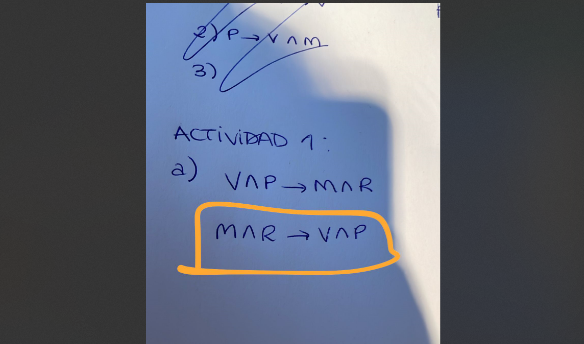 2) P → V ∧ M
3)
ACTIVIDAD 1:
a) V∧P → M∧R
M∧R → V∧P